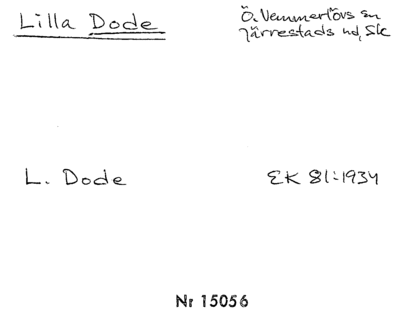 Lilla Dode
Ö. Vemmerlövs sn
Järrestads hd, Sk
L. Dode
EK 81:1934
Nr 15056